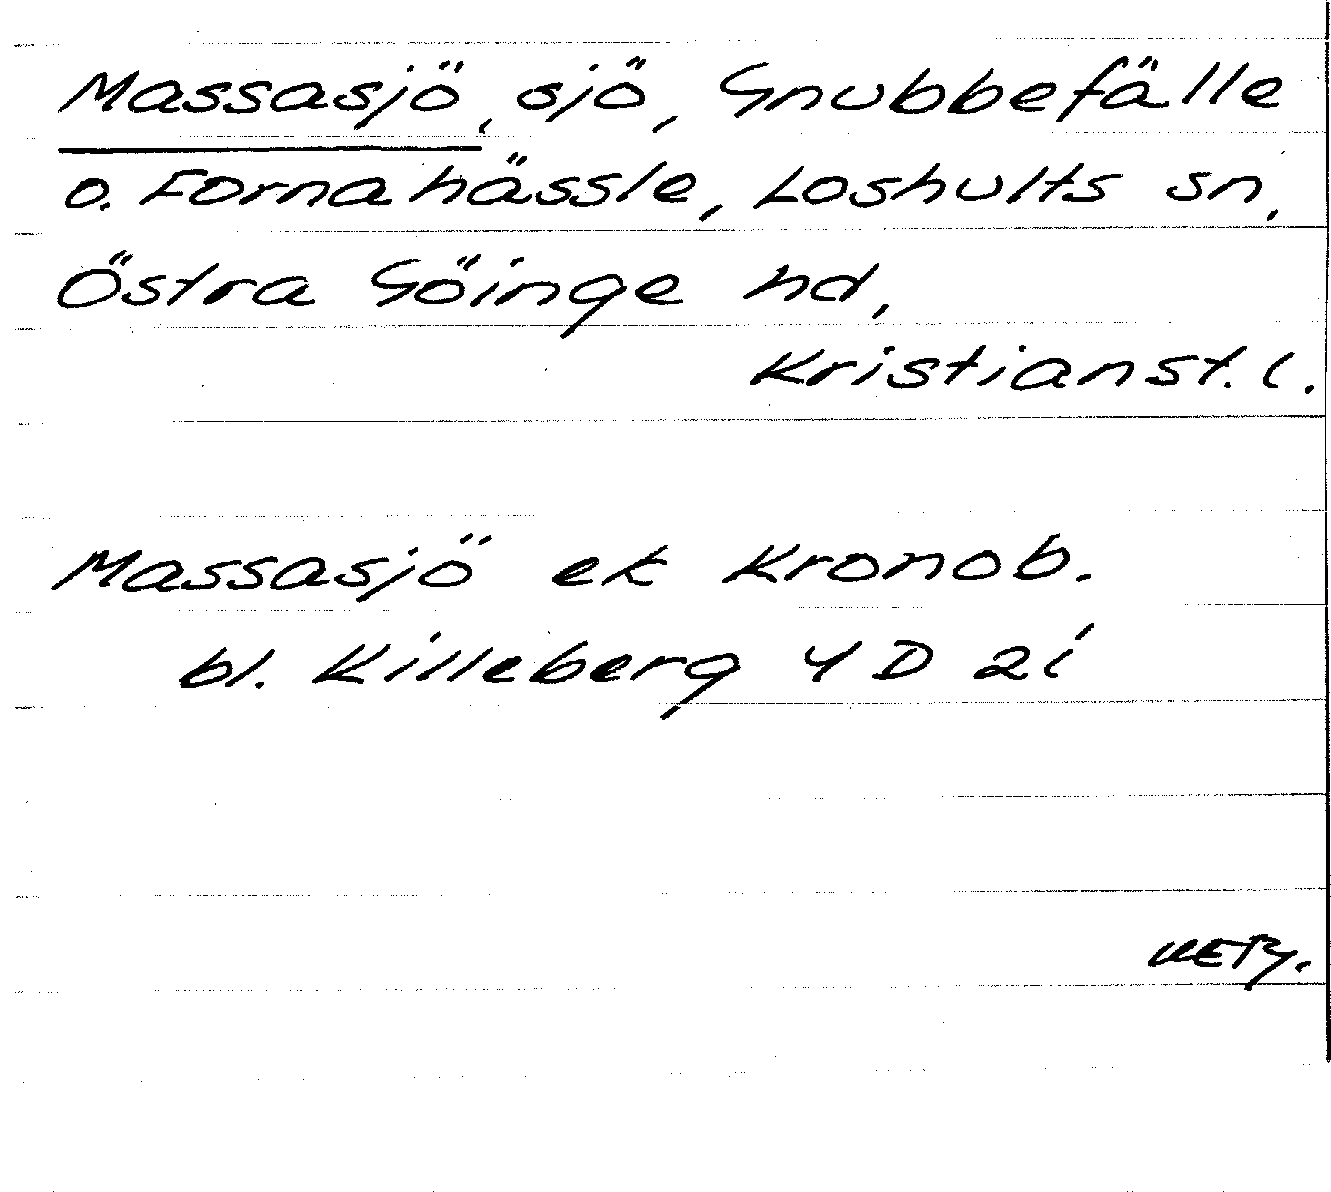 Massasjö, sjö, Gnubbefälle
o. Fornahässle, Loshults sn,
Östra Göinge hd,
Kristianst. l.
Massasjö ek Kronob.
bl. Killeberg 4 D 2i